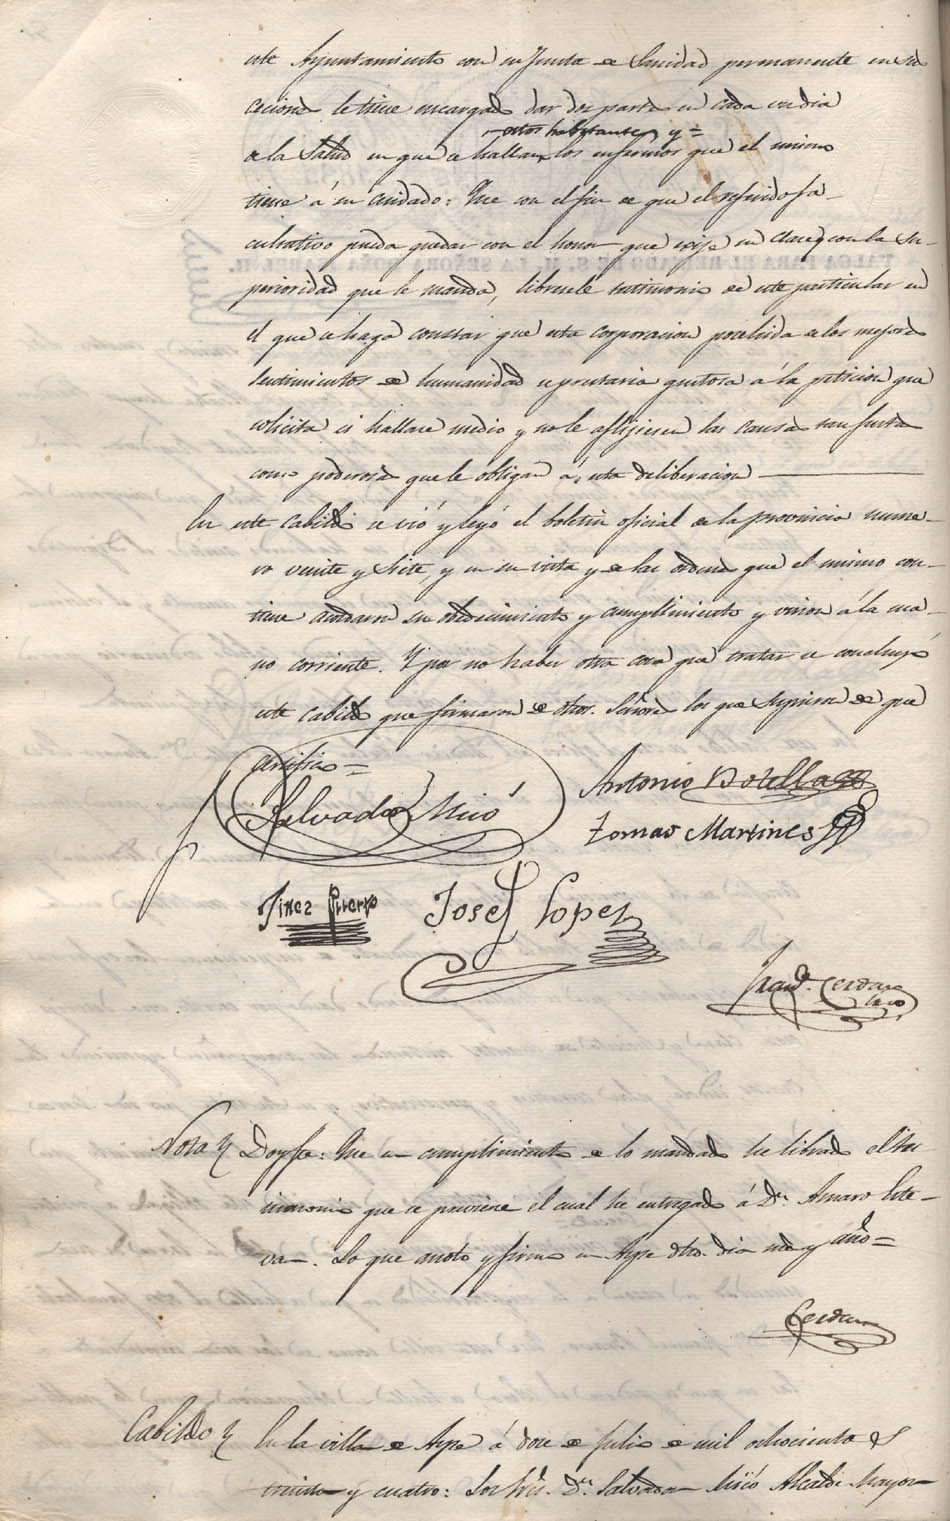 este Ayuntamiento con su Junta de Sanidad permanente en su
cecions le tiene encargado dar dos partes en cada un dia
estos habitantes y =
de la Salud en que se hallan los enfermos que el mismo
tiene á su cuidado: Que con el fin de que el referido fa-
cultativo pueda quedar con el honor que exije su clase y con la Su-
perioridad que le manda, libresele testimonio de este particular en
el que se haga constar que esta corporacion posehida de los mejores
sentimientos de humanidad se prestaria gustosa á la peticion que
solicita si hallase medio y no le aflijiesen las causas tan justas
como poderosas que le obligan á esta deliberacion
En este Cabildo se vió y leyó el boletin oficial de la provincia nume-
ro veinte y siete, y en su vista y de las ordenes que el mismo con-
tiene acordaron su obedecimiento y cumplimiento y unirlo á la ma-
no corriente. Y por no haber otra cosa que tratar se concluyó
este Cabildo que firmaron de dhos. Señores los que supieron de que
certifico =
Salvador Micó
Antonio Botella
Tomas Martines
Jinez Puerto
Josef Lopez
Franco. Cerdan
Nota Doy fe: Que en cumplimiento de lo mandado he librado el tes-
timonio que se previene el cual he entregado á Dn. Amaro Este-
van. Lo que anoto y firmo en Aspe dho. dia mes y año =
Cerdan
Cabildo En la villa de Aspe á doce de Julio de mil ochocientos
treinta y cuatro: Los Sres. Dn. Salvador Micó Alcalde Mayor